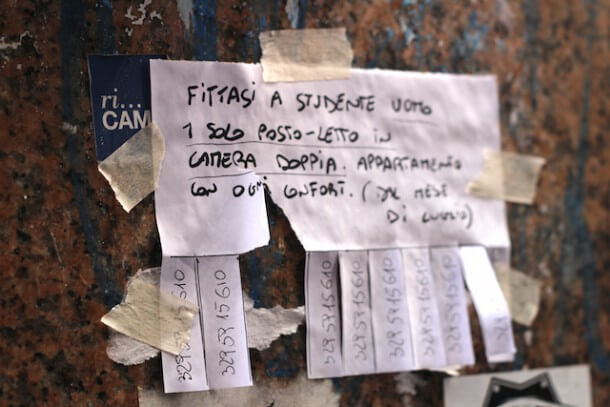 ri...
CAM
FITTASI A STUDENTE UOMO
1 SOLO POSTO-LETTO IN
CAMERA DOPPIA. APPARTAMENTO
CON OGNI CONFORT. (DAL MESE
DI LUGLIO)
3295915610
3295915610
3295915610
3295915610
3295915610
3295915610
3295915610